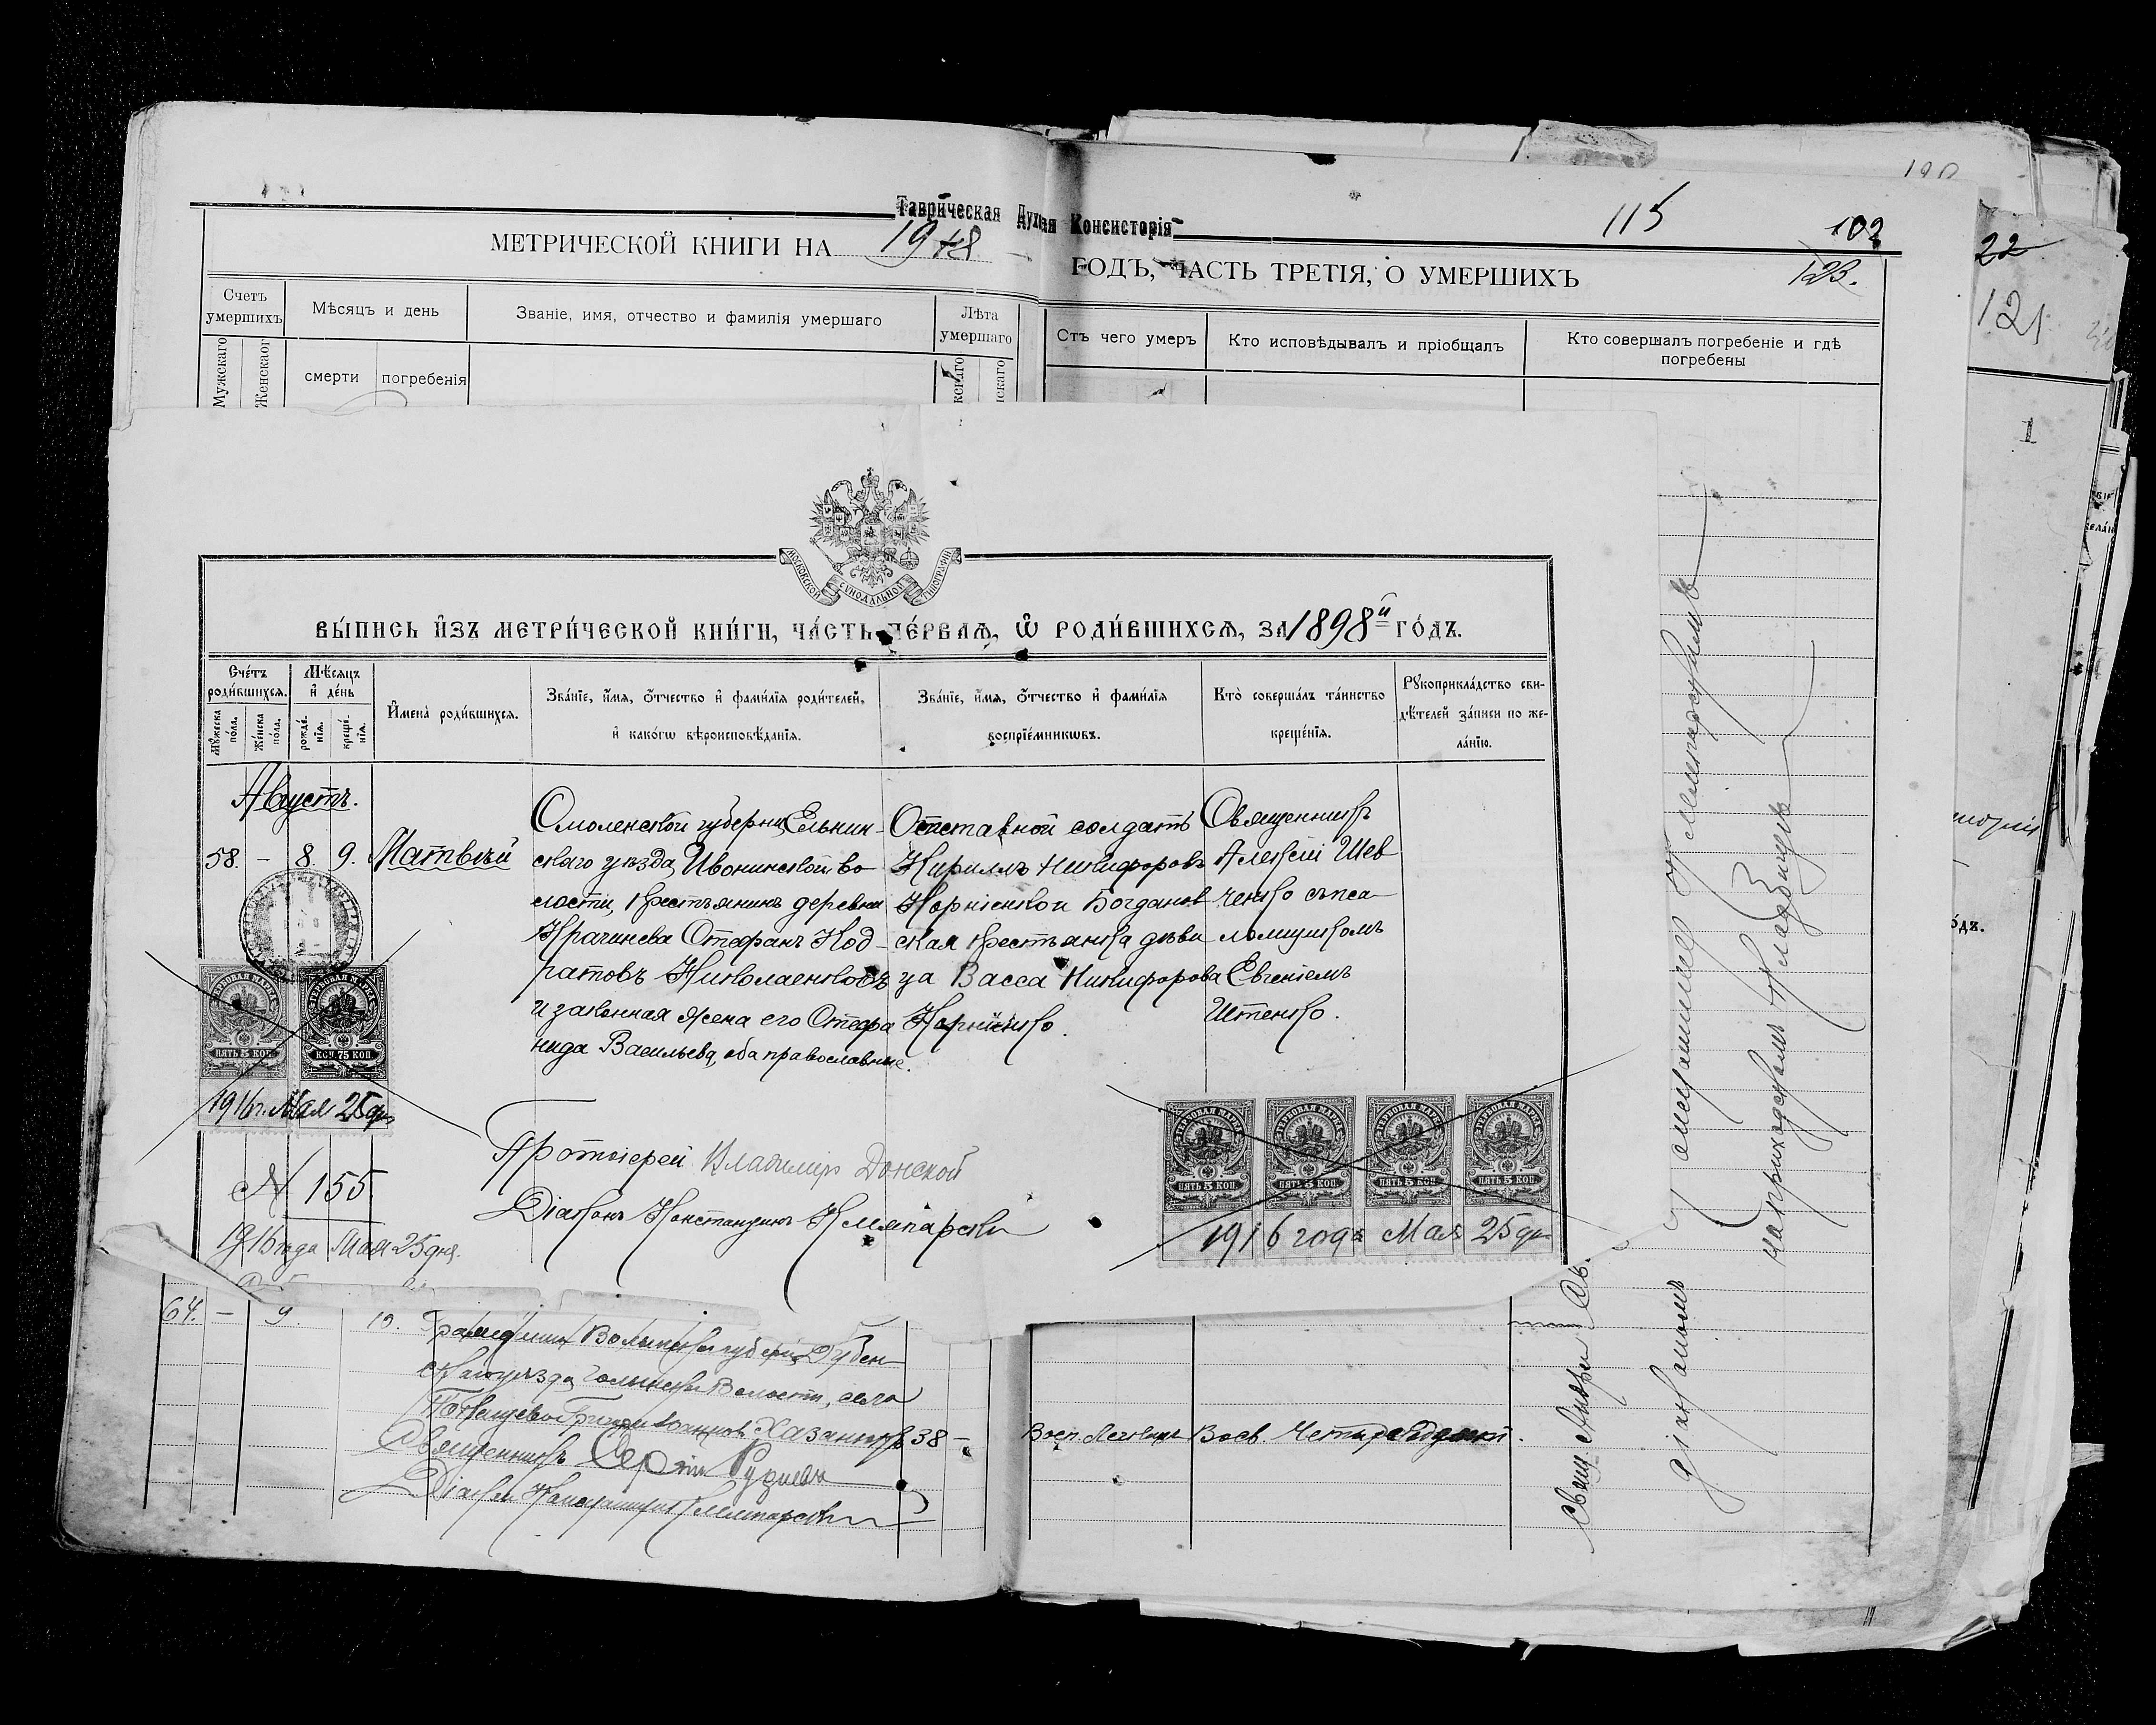 Таврическая Духная Консисторія
115
102
123.
22
121
1
МЕТРИЧЕСКОЙ КНИГИ НА 1918 ГОДЪ, ЧАСТЬ ТРЕТІЯ, О УМЕРШИХЪ
Счетъ умершихъ
Мѣсяцъ и день
Званіе, имя, отчество и фамилія умершаго
Лѣта умершаго
Отъ чего умеръ
Кто исповѣдывалъ и пріобщалъ
Кто совершалъ погребеніе и гдѣ погребены
Мужскаго
Женскаго
смерти
погребенія
МОСКОВСКОЙ СѴНОДАЛЬНОЙ ТИПОГРАФІИ
ВЫ́ПИСЬ И҆ЗЪ МЕТРИ́ЧЕСКОЙ КНИ́ГИ, ЧА́СТЬ ПЕ́РВАѦ, Ѡ҆ РОДИ́ВШИХСѦ, ЗА 1898й ГО́ДЪ.
Сче́тъ роди́вшихсѧ.
Мѣ́сѧцъ и҆ де́нь
И҆мена̀ роди́вшихсѧ.
Зва́нїе, и҆́мѧ, ѻ҆́тчество и҆ фами́лїѧ роди́телей,
и҆ како́гѡ вѣроисповѣ́данїѧ.
Зва́нїе, и҆́мѧ, ѻ҆́тчество и҆ фами́лїѧ
воспрїе́мникѡвъ.
Кто̀ соверша́лъ та́инство
креще́нїѧ.
Рꙋкоприкла́дство сви-
дѣ́телей за́писи по же-
ла́нїю.
Мꙋ́жеска по́ла.
Же́неска по́ла.
рожде́нїѧ.
креще́нїѧ.
Августъ.
58. - 8. 9. Матвѣй
Смоленской губерніи, Ельнин-
скаго уѣзда, Ивонинской во
лости, крестьянинъ деревни
Стефанъ Код-
ратовъ Николаенковъ
и законная жена его Стефа
нида Васильева, оба православные.
Отставной солдатъ
Кириллъ Никифоровъ
Корніенко и Богданов
ская крестьянка дѣви
ца Васса Никифорова
Корніенко.
Священникъ
Алексій Шев
ченко съ пса
ломщикомъ
Евгеніемъ
Штенко.
ГЕРБОВАЯ МАРКА
ПЯТЬ 5 КОП.
ГЕРБОВАЯ МАРКА
КОП. 75 КОП.
1916 г. Мая 25 дн.
N 155
1916 года Мая 25 дня.
Протоіерей Владимір Донской
Діаконъ Константинъ
ГЕРБОВАЯ МАРКА
ПЯТЬ 5 КОП.
ГЕРБОВАЯ МАРКА
ПЯТЬ 5 КОП.
ГЕРБОВАЯ МАРКА
ПЯТЬ 5 КОП.
ГЕРБОВАЯ МАРКА
ПЯТЬ 5 КОП.
1916 года Мая 25 дн
64. - 9. 10.
Волынской губерніи Дубен-
скаго уѣзда, волости, села
38 -
Священникъ Сергій
Діаконъ Константинъ
Восп. легкихъ
діакономъ
на приходскомъ кладбищѣ